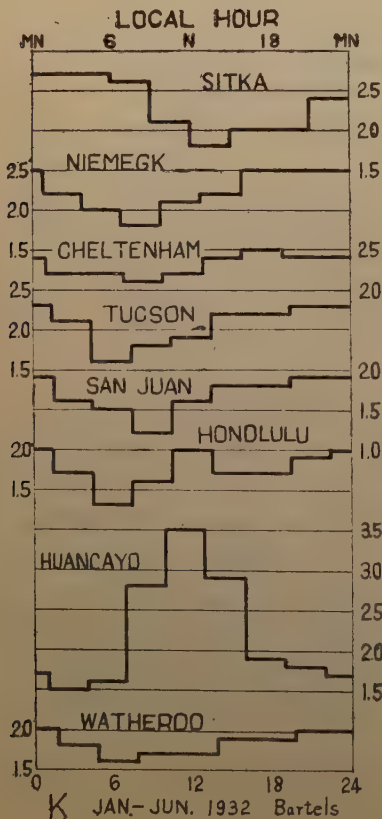 LOCAL HOUR
MN 6 N 18 MN
SITKA
2.5
2.0
NIEMEGK
2.5 1.5
2.0
CHELTENHAM
1.5 2.5
2.5
TUCSON
2.0
2.0
1.5
SAN JUAN
1.5
HONOLULU
2.0 1.0
1.5
3.5
HUANCAYO
3.0
2.5
2.0
1.5
WATHEROO
2.0
1.5
0 6 12 18 24
K JAN.-JUN. 1932 Bartels